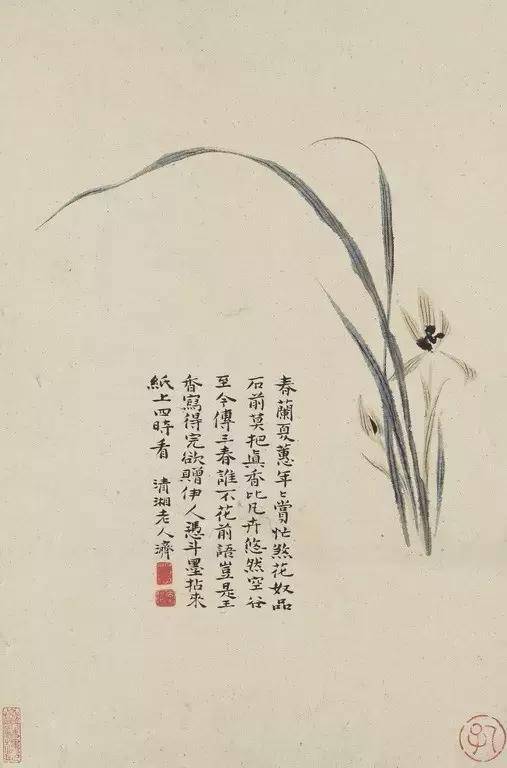 春蘭夏蕙年〻賞忙煞花奴品
石前莫把眞香比凡卉悠然空谷
至今傳三春誰不花前語豈是王
香寫得完欲贈伊人憑斗墨拈來
紙上四時看 清湘老人濟